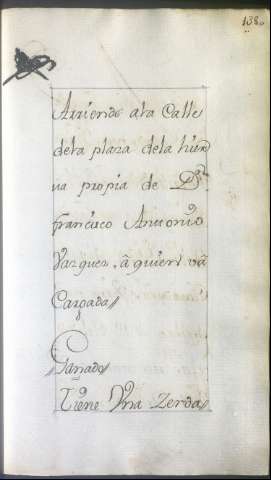 138.
Arriendo ala Calle
dela plaza dela hier
va propia de Dn
francisco Antonio
Vazquez, â quien vâ
Cargada//
Ganado//
Tiene Vna Zerda//